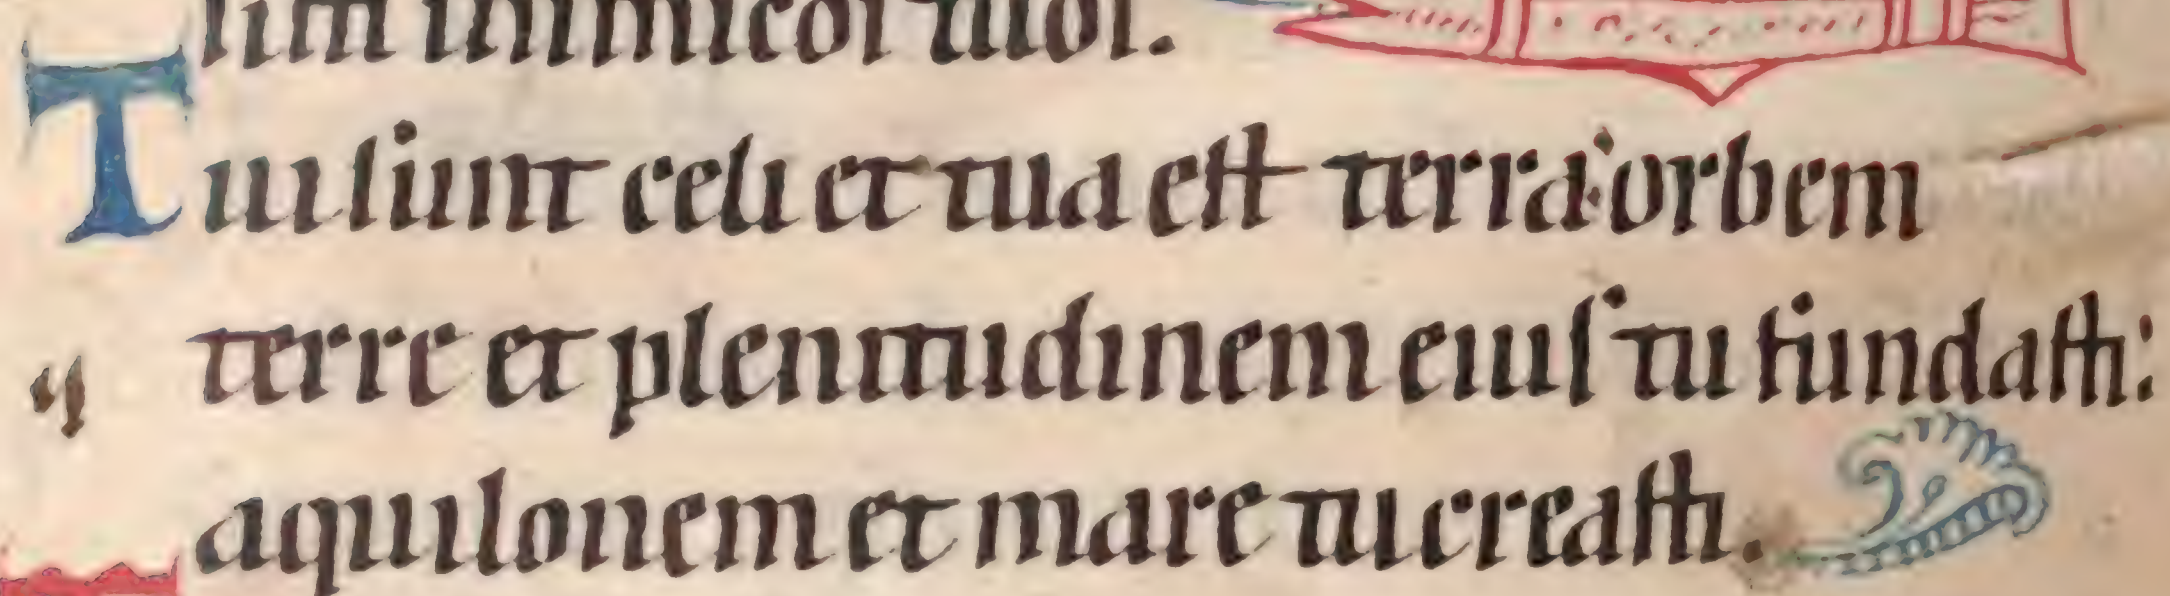 inimicos tuos.
Tui sunt celi et tua est terra: orbem
terre et plenitudinem eius tu fundasti:
aquilonem et mare tu creasti.